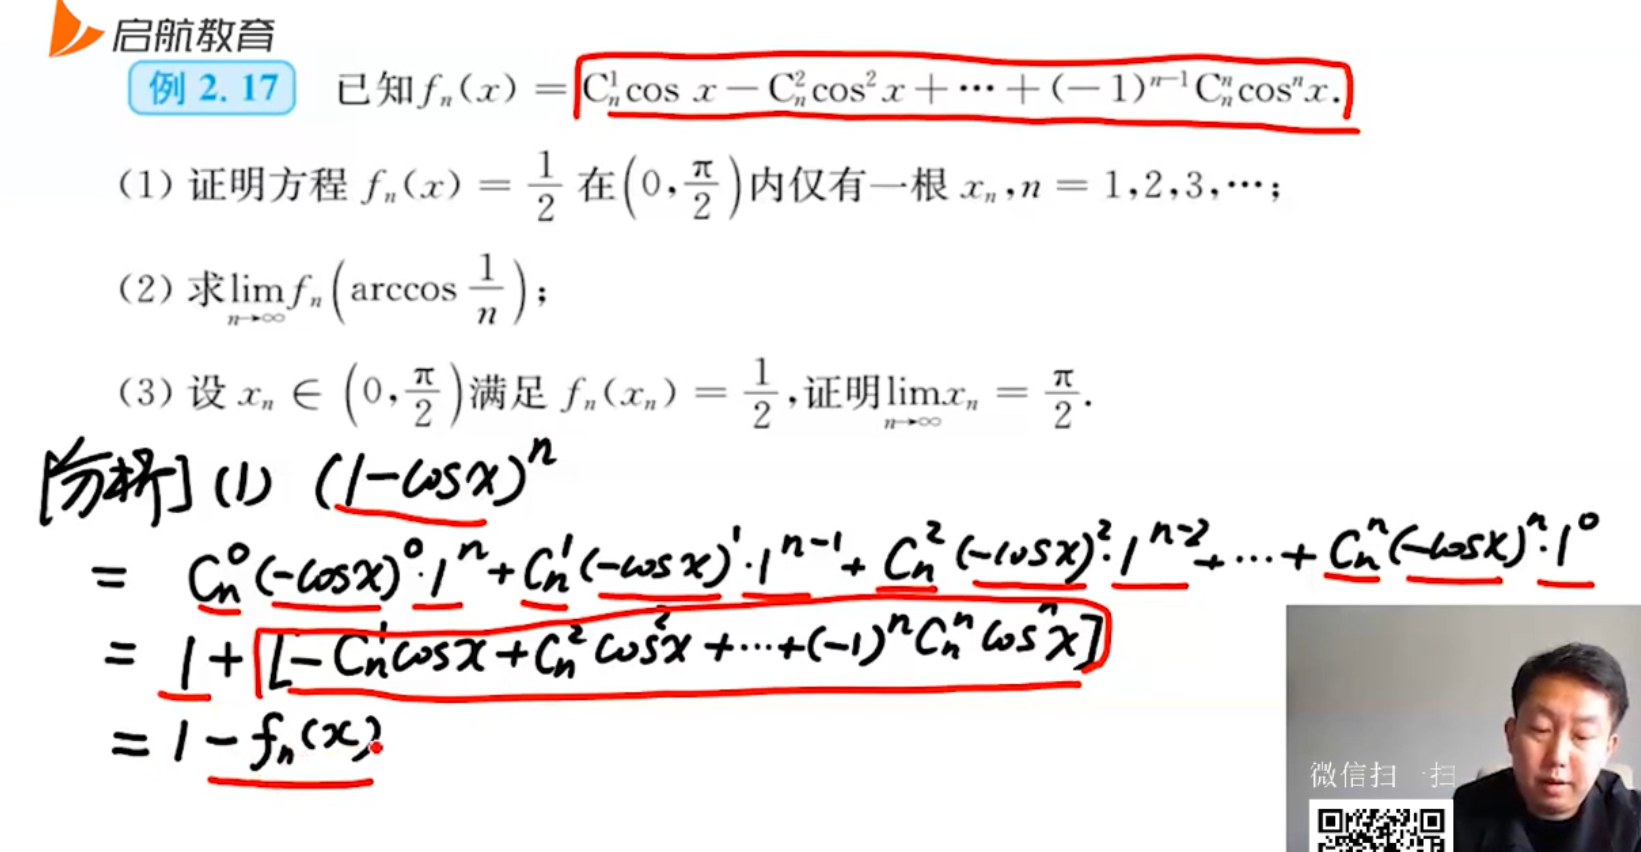 启航教育
例 2.17 已知 fₙ(x) = Cₙ¹cos x − Cₙ²cos²x + ⋯ + (−1)ⁿ⁻¹Cₙⁿcosⁿx.
(1) 证明方程 fₙ(x) = 1/2 在(0, π/2)内仅有一根 xₙ, n = 1,2,3,⋯;
(2) 求 lim n→∞ fₙ(arccos 1/n);
(3) 设 xₙ ∈ (0, π/2)满足 fₙ(xₙ) = 1/2, 证明 lim n→∞ xₙ = π/2.
[分析] (1) (1−cosx)ⁿ
= Cₙ⁰(−cosx)⁰·1ⁿ + Cₙ¹(−cosx)¹·1ⁿ⁻¹ + Cₙ²(−cosx)²·1ⁿ⁻² + ⋯ + Cₙⁿ(−cosx)ⁿ·1⁰
= 1 + [−Cₙ¹cosx + Cₙ²cos²x + ⋯ + (−1)ⁿCₙⁿcosⁿx]
= 1 − fₙ(x)
微信扫一扫